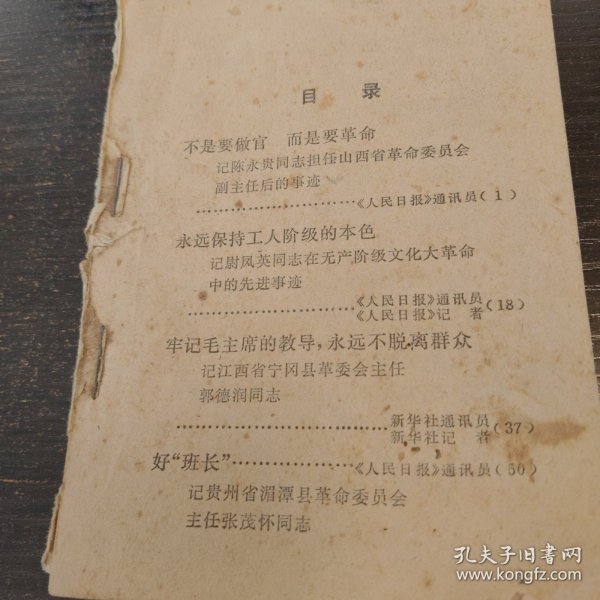 目 录
不是要做官 而是要革命
记陈永贵同志担任山西省革命委员会
副主任后的事迹
……………………《人民日报》通讯员(1)
永远保持工人阶级的本色
记尉凤英同志在无产阶级文化大革命
中的先进事迹
……………………《人民日报》通讯员
《人民日报》记 者(18)
牢记毛主席的教导,永远不脱离群众
记江西省宁冈县革委会主任
郭德润同志
……………………新华社通讯员
新华社记 者(37)
好“班长”……………《人民日报》通讯员(50)
记贵州省湄潭县革命委员会
主任张茂怀同志
孔夫子旧书网
www.kongfz.com